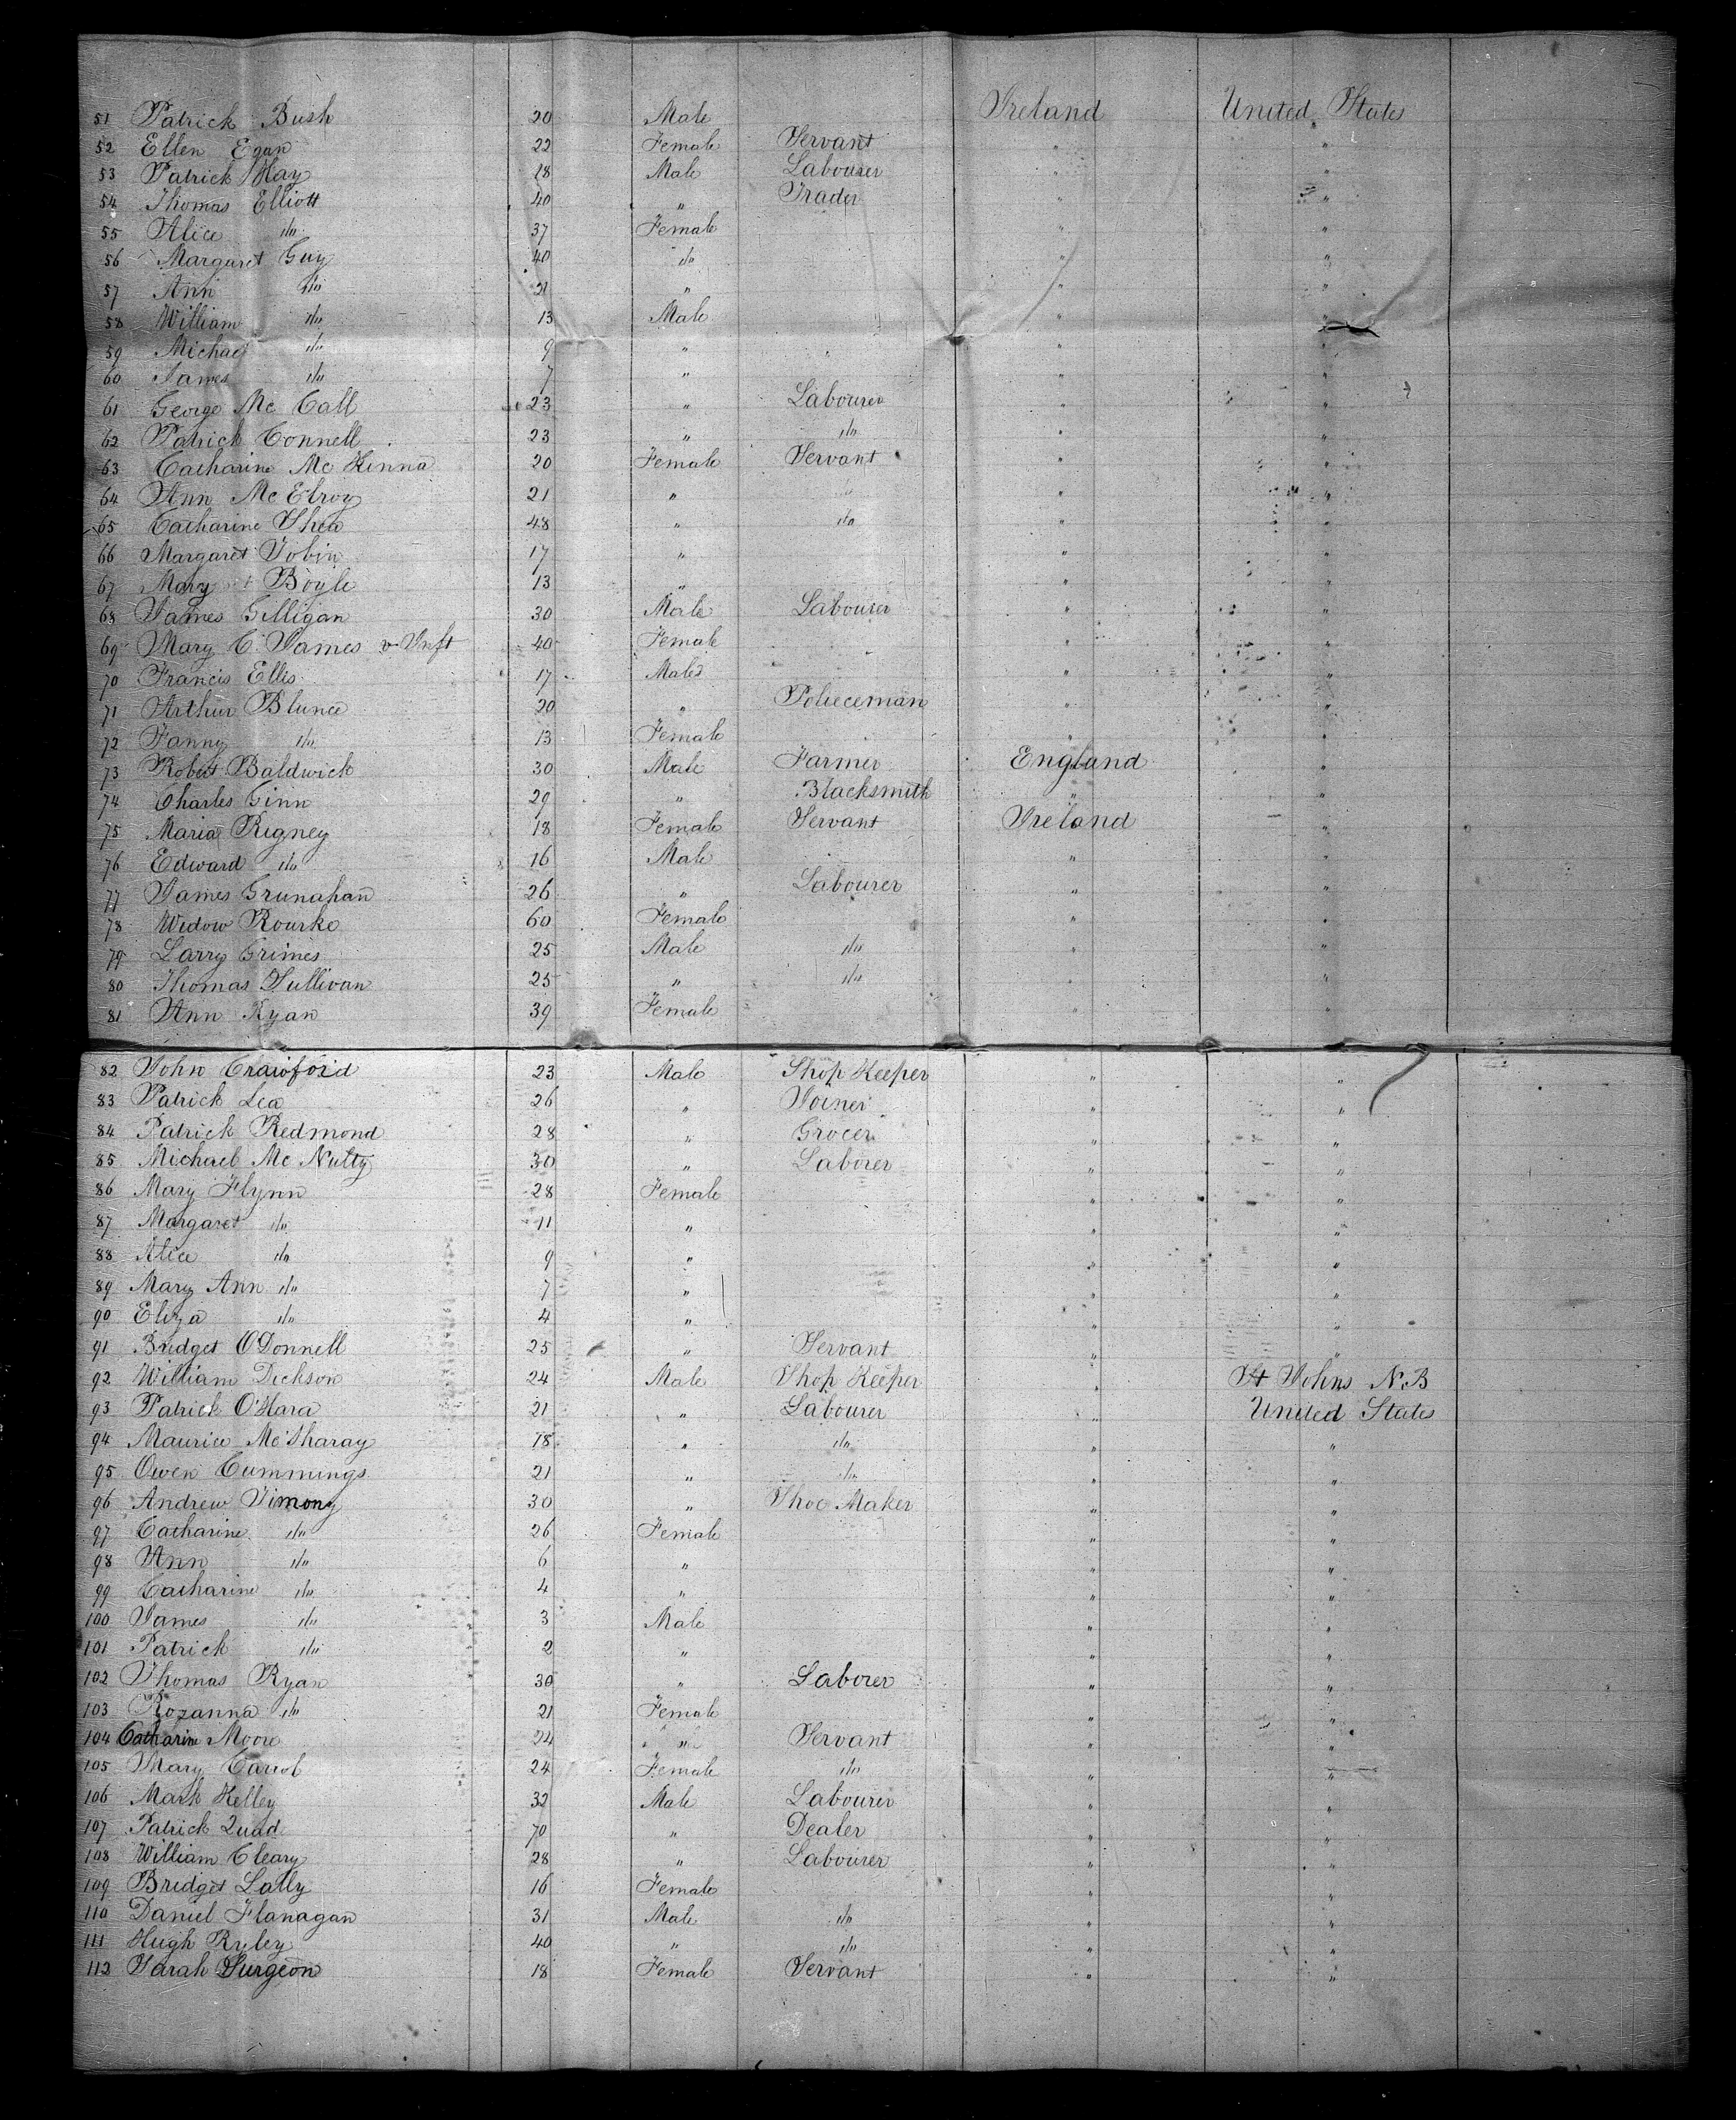 51 Patrick Bush 20 Male Ireland United States
52 Ellen Egan 22 Female Servant " "
53 Patrick Hay 18 Male Labourer " "
54 Thomas Elliott 40 " Trader " "
55 Alice do 37 Female " "
56 Margaret Guy 40 do " "
57 Ann do 21 " " "
58 William do 13 Male " "
59 Michael do 9 " " "
60 James do 7 " " "
61 George Mc Call 23 " Labourer " "
62 Patrick Connell 23 " do " "
63 Catharine Mc Kenna 20 Female Servant " "
64 Ann Mc Elroy 21 " do " "
65 Catharine Shea 48 " do " "
66 Margaret Tobin 17 " " "
67 Mary Boyle 13 " " "
68 James Gilligan 30 Male Labourer " "
69 Mary C. James & Inft 40 Female " "
70 Francis Ellis 17 Male " "
71 Arthur Blunce 20 " Policeman " "
72 Fanny do 13 Female " "
73 Robert Baldwick 30 Male Farmer England "
74 Charles Ginn 29 " Blacksmith " "
75 Maria Rigney 18 Female Servant Ireland "
76 Edward do 16 Male " "
77 James Grunahan 26 " Labourer " "
78 Widow Rourke 60 Female " "
79 Larry Grimes 25 Male do " "
80 Thomas Sullivan 25 " do " "
81 Ann Ryan 39 Female " "
82 John Crawford 23 Male Shop Keeper " "
83 Patrick Lea 26 " Joiner " "
84 Patrick Redmond 28 " Grocer " "
85 Michael Mc Nulty 30 " Laborer " "
86 Mary Flynn 28 Female " "
87 Margaret do 11 " " "
88 Alice do 9 " " "
89 Mary Ann do 7 " " "
90 Eliza do 4 " " "
91 Bridget O'Donnell 25 " Servant " "
92 William Dickson 24 Male Shop Keeper " St Johns N.B
93 Patrick O'Hara 21 " Labourer " United States
94 Maurice McSharay 18 " do " "
95 Owen Cummings 21 " do " "
96 Andrew Timony 30 " Shoe Maker " "
97 Catharine do 26 Female " "
98 Ann do 6 " " "
99 Catharine do 4 " " "
100 James do 3 Male " "
101 Patrick do 2 " " "
102 Thomas Ryan 30 " Laborer " "
103 Rozanna do 21 Female " "
104 Catharin Moore 24 " Servant " "
105 Mary Carrol 24 Female do " "
106 Mark Kelley 32 Male Labourer " "
107 Patrick Quad 70 " Dealer " "
108 William Cleary 28 " Labourer " "
109 Bridget Lally 16 Female " "
110 Daniel Flanagan 31 Male do " "
111 Hugh Ryley 40 " do " "
112 Sarah Surgeon 18 Female Servant " "